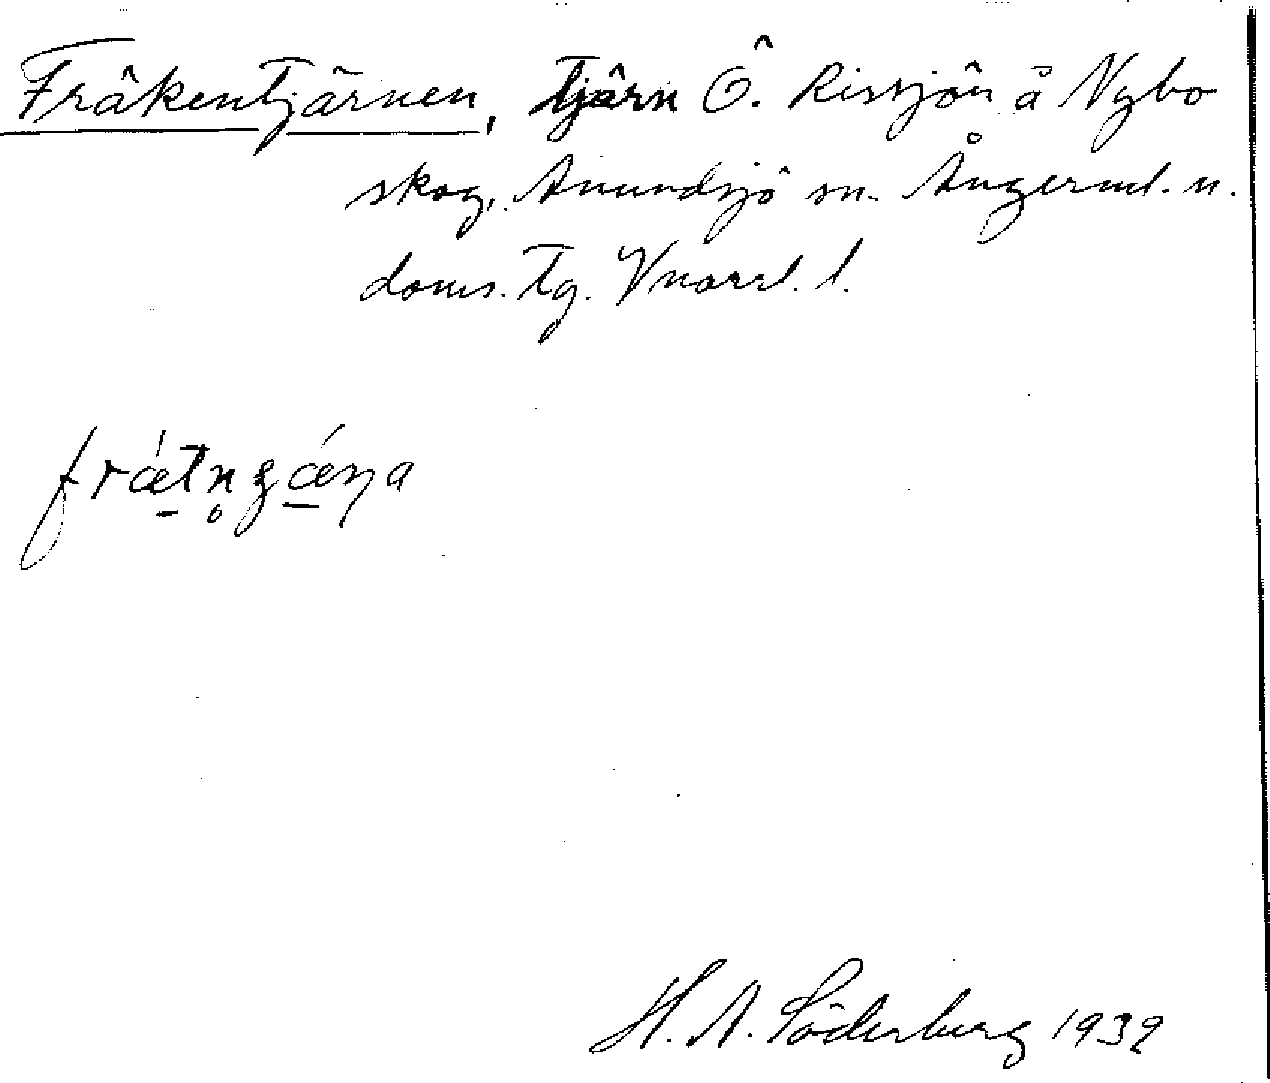 Fräkentjärnen, tjärn Ö. Rissjön å Nybo
skog, Anundsjö sn. Ångerml. n.
doms. Tg. Vnorrl. l.
H. A. Söderberg 1939